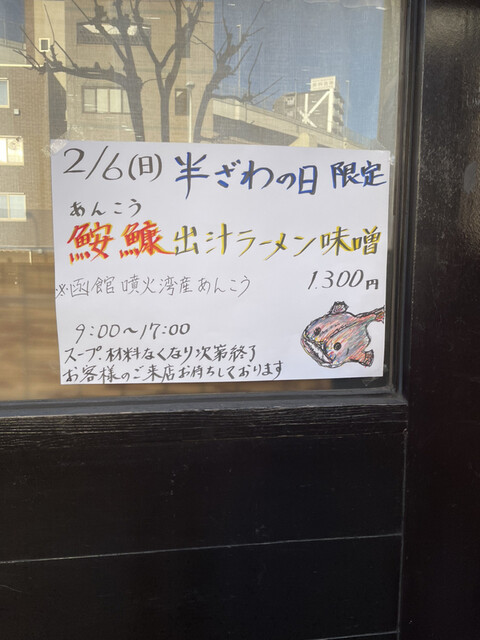 2/6(日) 半ざわの日 限定
あんこう
鮟鱇出汁ラーメン味噌
※函館噴火湾産あんこう 1.300円
9:00〜17:00
スープ.材料なくなり次第終了
お客様のご来店お待ちしております